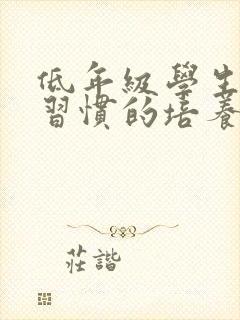 低年級學生
習慣的培養
莊諧